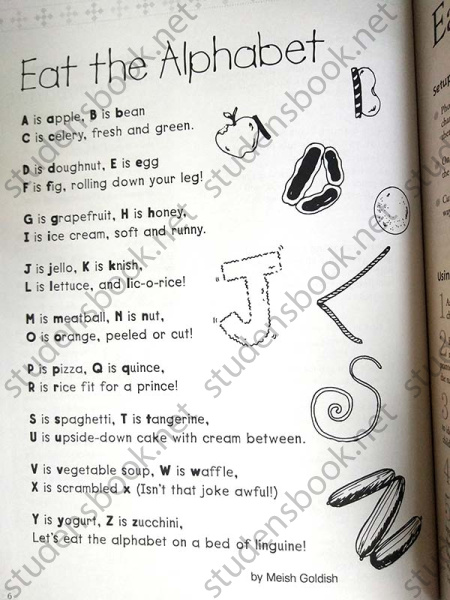 Eat the Alphabet
A is apple, B is bean
C is celery, fresh and green.
D is doughnut, E is egg
F is fig, rolling down your leg!
G is grapefruit, H is honey,
I is ice cream, soft and runny.
J is jello, K is knish,
L is lettuce, and lic-o-rice!
M is meatball, N is nut,
O is orange, peeled or cut!
P is pizza, Q is quince,
R is rice fit for a prince!
S is spaghetti, T is tangerine,
U is upside-down cake with cream between.
V is vegetable soup, W is waffle,
X is scrambled x (Isn't that joke awful!)
Y is yogurt, Z is zucchini,
Let's eat the alphabet on a bed of linguine!
by Meish Goldish
6
Setup
Using
studensbook.net